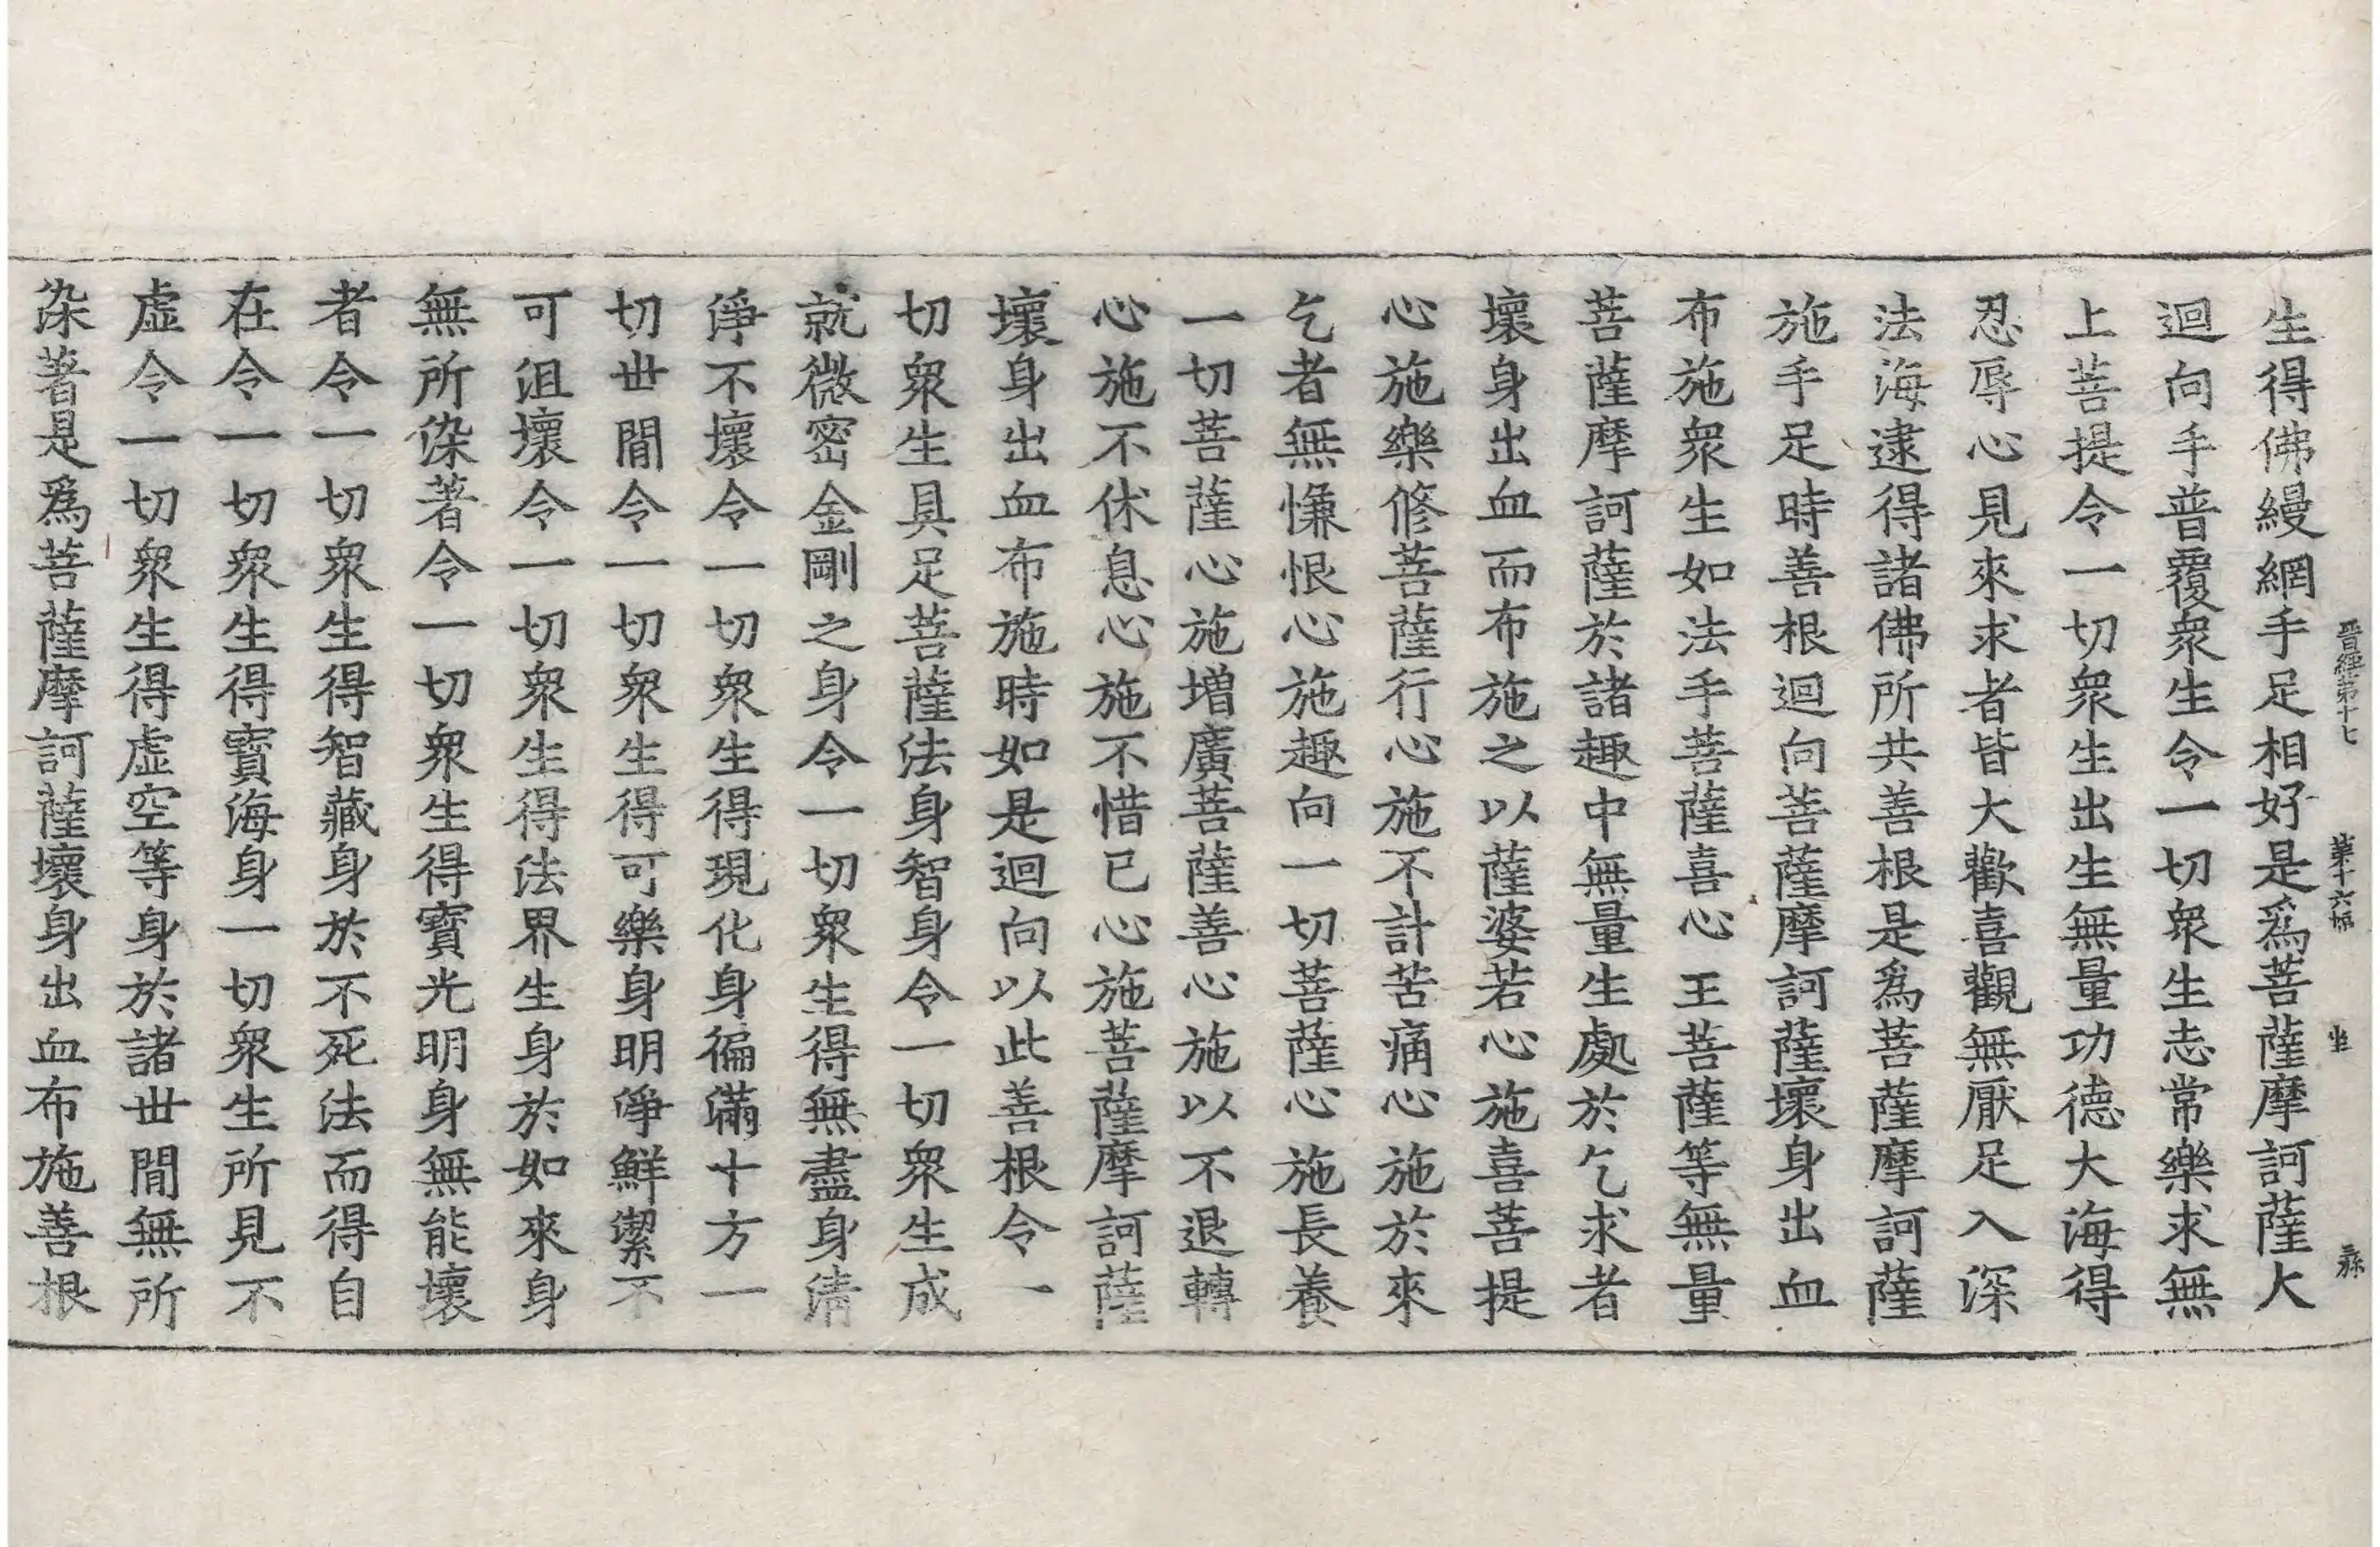 晉經第十七 第十六幅 坐
生得佛縵網手足相好是為菩薩摩訶薩大
迴向手普覆衆生令一切衆生志常樂求無
上菩提令一切衆生出生無量功德大海得
忍辱心見來求者皆大歡喜觀無厭足入深
法海逮得諸佛所共善根是為菩薩摩訶薩
施手足時善根迴向菩薩摩訶薩壞身出血
布施衆生如法手菩薩喜心王菩薩等無量
菩薩摩訶薩於諸趣中無量生處於乞求者
壞身出血而布施之以薩婆若心施喜菩提
心施樂修菩薩行心施不計苦痛心施於來
乞者無慊恨心施趣向一切菩薩心施長養
一切菩薩心施増廣菩薩善心施以不退轉
心施不休息心施不惜已心施菩薩摩訶薩
壞身出血布施時如是迴向以此善根令一
切衆生具足菩薩法身智身令一切衆生成
就微密金剛之身令一切衆生得無盡身清
淨不壞令一切衆生得現化身徧滿十方一
切世間令一切衆生得可樂身明淨鮮潔不
可沮壞令一切衆生得法界生身於如來身
無所染著令一切衆生得寳光明身無能壞
者令一切衆生得智藏身於不死法而得自
在令一切衆生得寳海身一切衆生所見不
虛令一切衆生得虛空等身於諸世間無所
染著是爲菩薩摩訶薩壞身出血布施善根